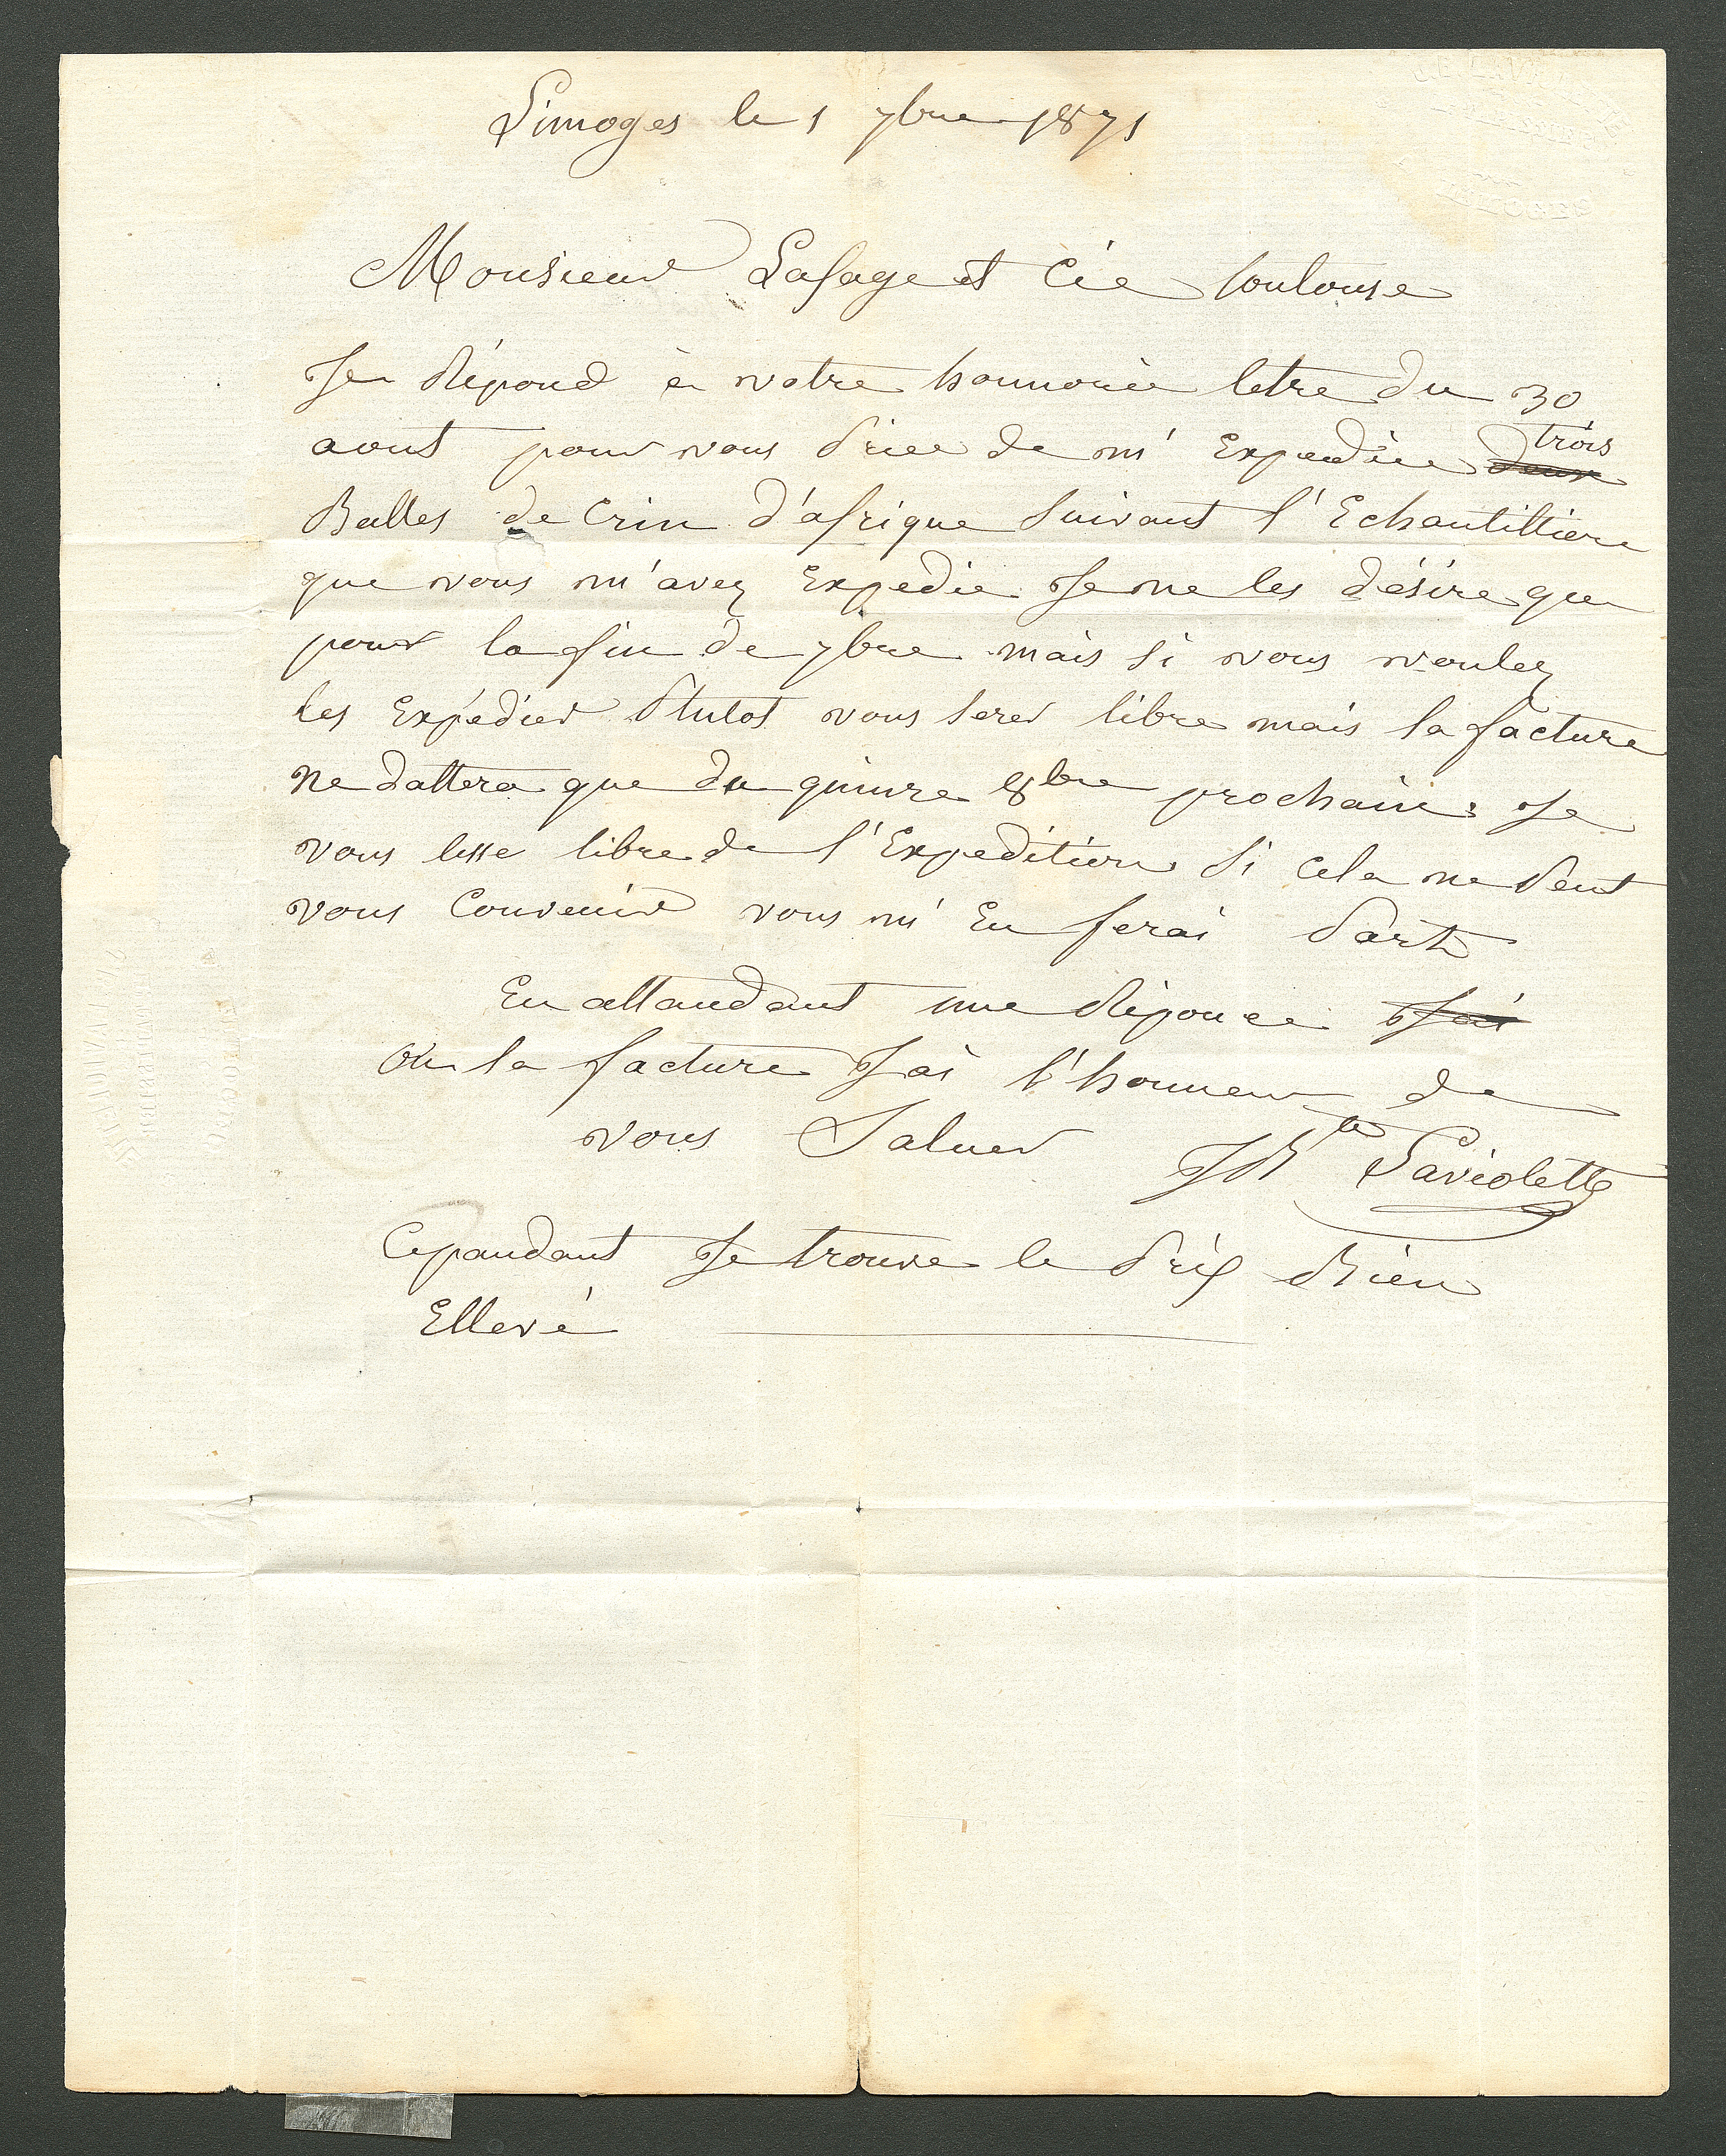 Limoges le 1 7bre 1871
Monsieur Lafage et Cie toulouse
Je Répond à votre honnorée letre du 30
aout pour vous Priee de m'Expediée trois
Balles de Crin d'afrique Suivant l'Echantillion
que vous m'avez Expedie Je ne les désire que
pour la fin de 7bre mais Si vous voulez
les Expédier Plutot vous Serer libre mais la facture
ne dattera que du quinze 8bre prochain Je
vous lesse libre de l'Expedition Si cela ne Peut
vous Convenir vous m'En ferai Part
En attandant une Réponce
Ou la facture J'ai l'honneur de
vous Saluer
JBte Laviolette
Cepandant Je trouve le Prix Bien
Ellevé